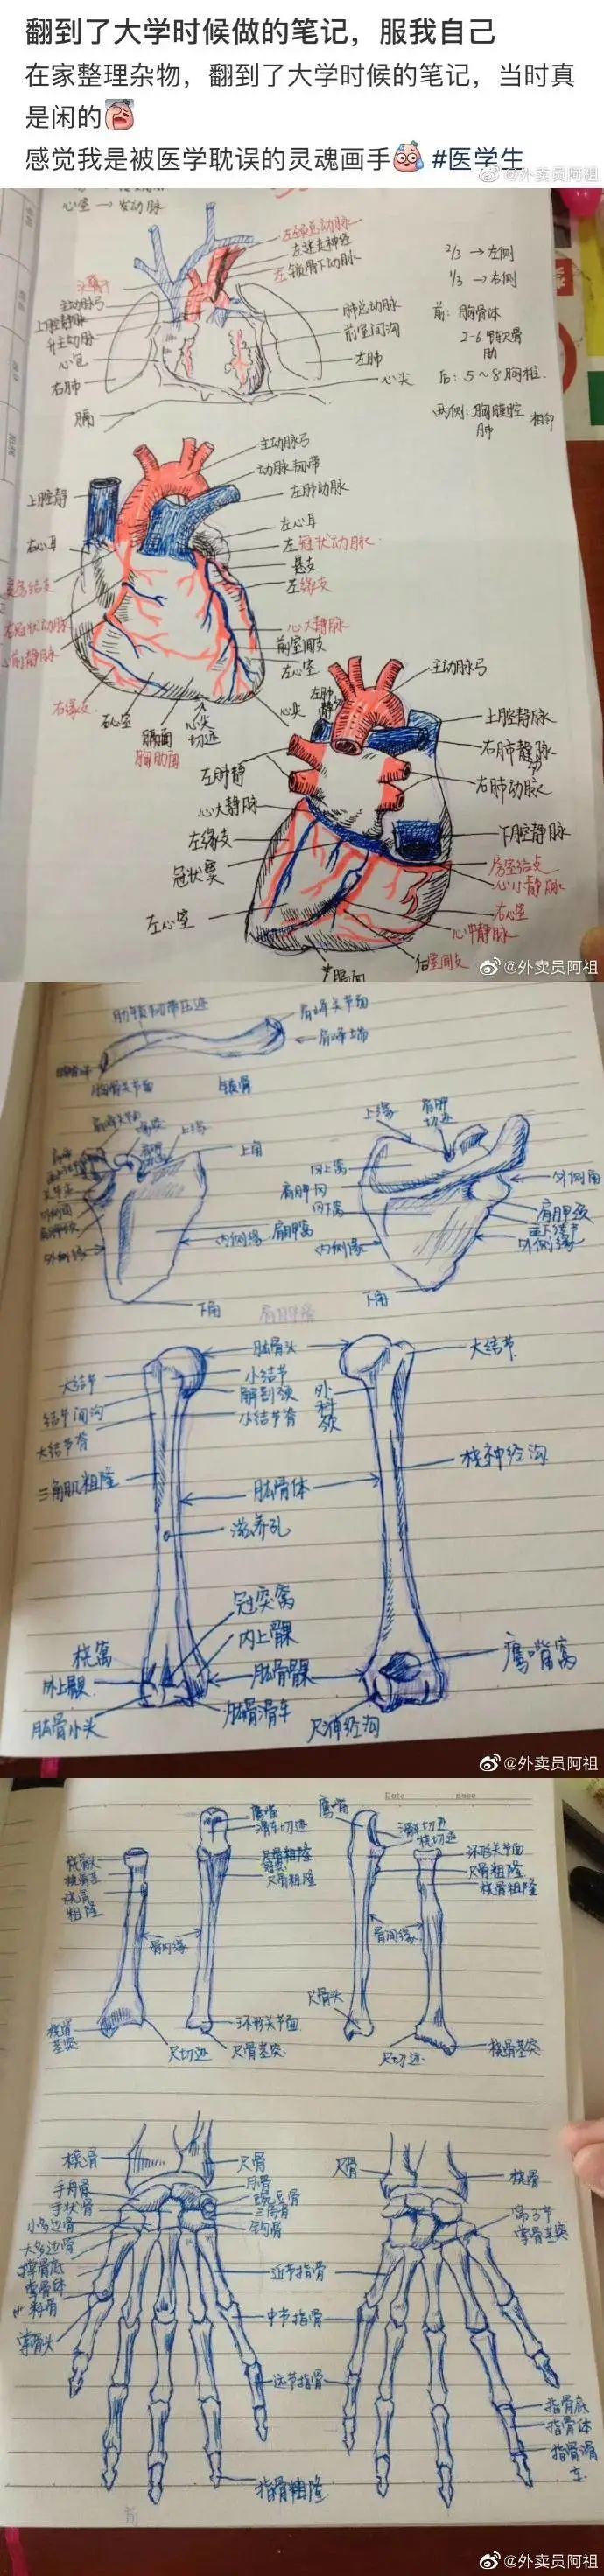 翻到了大学时候做的笔记，服我自己
在家整理杂物，翻到了大学时候的笔记，当时真
是闲的
感觉我是被医学耽误的灵魂画手 #医学生
@外卖员阿祖
心室 → 发动脉
左颈总动脉
左迷走神经
左锁骨下动脉
主动脉弓
上腔静脉
升主动脉
心包
右肺
膈
肺总动脉
前室间沟
左肺
心尖
2/3 → 左侧
1/3 → 右侧
前: 胸骨体
2-6 软骨
肋
后: 5~8胸椎.
两侧: 胸膜腔
肺
相邻
主动脉弓
动脉韧带
左肺动脉
上腔静
左心耳
左冠状动脉
右心耳
左缘支
右冠状动脉
心大静脉
心前静脉
前室间支
左心室
右缘支
右心室
膈面
胸肋面
心尖
切迹
心尖
左肺
主动脉弓
上腔静脉
右肺静脉
左肺静
右肺动脉
心大静脉
左缘支
下腔静脉
冠状窦
房室结支
心小静脉
左心室
右心室
心中静脉
后室间支
膈面
@外卖员阿祖
肋锁韧带压迹
肩峰关节面
肩峰端
胸骨关节面
锁骨
上缘
上角
外侧缘
内侧缘
肩胛窝
下角
上缘
肩胛
切迹
冈上窝
肩胛冈
冈下窝
内侧缘
外侧角
肩胛颈
外侧缘
下角
肱骨头
大结节
小结节
解剖颈
外科颈
大结节
结节间沟
小结节嵴
大结节嵴
三角肌粗隆
桡神经沟
肱骨体
滋养孔
冠突窝
桡窝
内上髁
外上髁
肱骨髁
鹰嘴窝
肱骨小头
肱骨滑车
尺神经沟
@外卖员阿祖
Date
page
鹰嘴
滑车切迹
鹰嘴
滑车切迹
桡切迹
桡骨头
环形关节面
桡骨
粗隆
尺骨粗隆
尺骨粗隆
桡骨粗隆
骨间缘
骨间缘
尺骨头
桡骨
茎突
环形关节面
尺切迹
尺骨茎突
尺切迹
桡骨茎突
桡骨
尺骨
尺骨
桡骨
手舟骨
月骨
豌豆骨
三角骨
小多边骨
钩骨
大多边骨
掌骨底
掌骨体
掌骨头
第3节
掌骨茎突
近节指骨
中节指骨
远节指骨
指骨底
指骨体
指骨滑
车
指骨粗隆
前
@外卖员阿祖